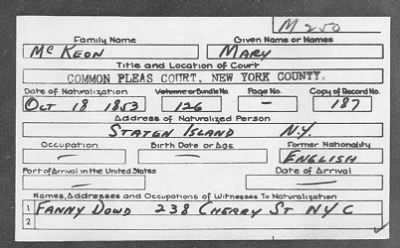 M 250
Family Name Given Name or Names
Mc Keon Mary
Title and Location of Court
COMMON PLEAS COURT, NEW YORK COUNTY.
Date of Naturalization Volume or Bundle No. Page No. Copy of Record No.
Oct 18 1853 126 — 187
Address of Naturalized Person
Staten Island N.Y.
Occupation Birth Date or Age Former Nationality
— — English
Port of Arrival in the United States Date of Arrival
— —
Names, Addresses and Occupations of Witnesses To Naturalization
1 Fanny Dowd 238 Cherry St NYC
2